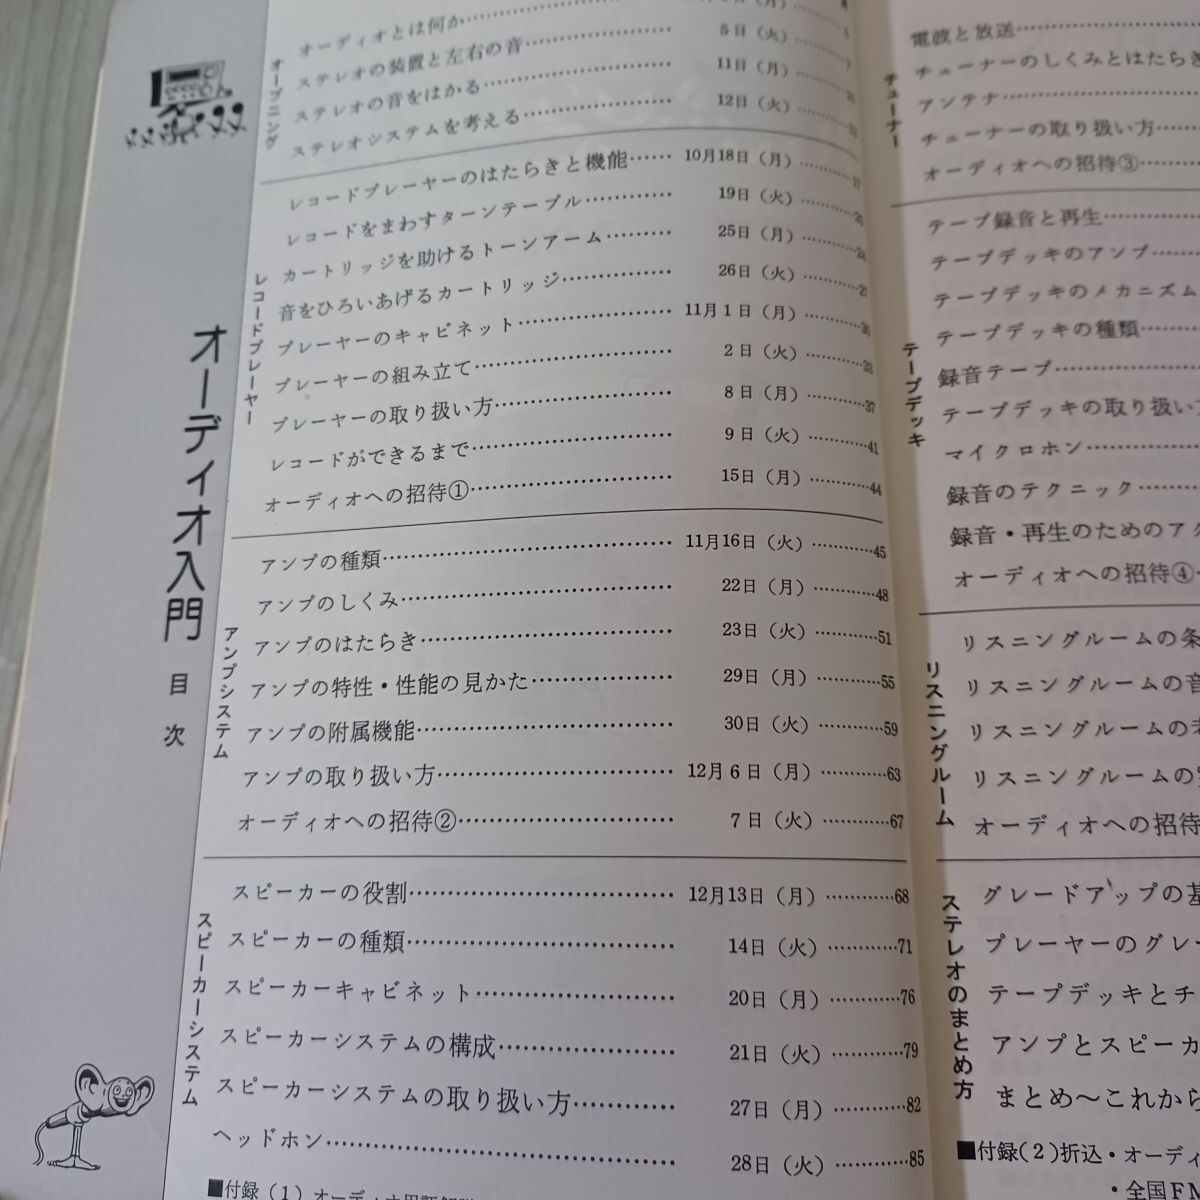 オーディオ入門
目次
オープニング
オーディオとは何か
ステレオの装置と左右の音……5日(火)
ステレオの音をはかる……11日(月)
ステレオシステムを考える……12日(火)
レコードプレーヤー
レコードプレーヤーのはたらきと機能……10月18日(月)……17
レコードをまわすターンテーブル……19日(火)……20
カートリッジを助けるトーンアーム……25日(月)……24
音をひろいあげるカートリッジ……26日(火)……27
プレーヤーのキャビネット……11月1日(月)……30
プレーヤーの組み立て……2日(火)……33
プレーヤーの取り扱い方……8日(月)……37
レコードができるまで……9日(火)……41
オーディオへの招待①……15日(月)……44
アンプシステム
アンプの種類……11月16日(火)……45
アンプのしくみ……22日(月)……48
アンプのはたらき……23日(火)……51
アンプの特性・性能の見かた……29日(月)……55
アンプの附属機能……30日(火)……59
アンプの取り扱い方……12月6日(月)……63
オーディオへの招待②……7日(火)……67
スピーカーシステム
スピーカーの役割……12月13日(月)……68
スピーカーの種類……14日(火)……71
スピーカーキャビネット……20日(月)……76
スピーカーシステムの構成……21日(火)……79
スピーカーシステムの取り扱い方……27日(月)……82
ヘッドホン……28日(火)……85
■付録(1)オーディオ用語解説
チューナー
電波と放送……
チューナーのしくみとはたらき
アンテナ……
チューナーの取り扱い方……
オーディオへの招待③……
テープデッキ
テープ録音と再生……
テープデッキのアンプ……
テープデッキのメカニズム
テープデッキの種類……
録音テープ……
テープデッキの取り扱い方
マイクロホン……
録音のテクニック……
録音・再生のためのアク
オーディオへの招待④……
リスニングルーム
リスニングルームの条
リスニングルームの音
リスニングルームの
リスニングルームの
オーディオへの招待
ステレオのまとめ方
グレードアップの基
プレーヤーのグレー
テープデッキとチ
アンプとスピーカ
まとめ～これから
■付録(2)折込・オーディ
・全国FM